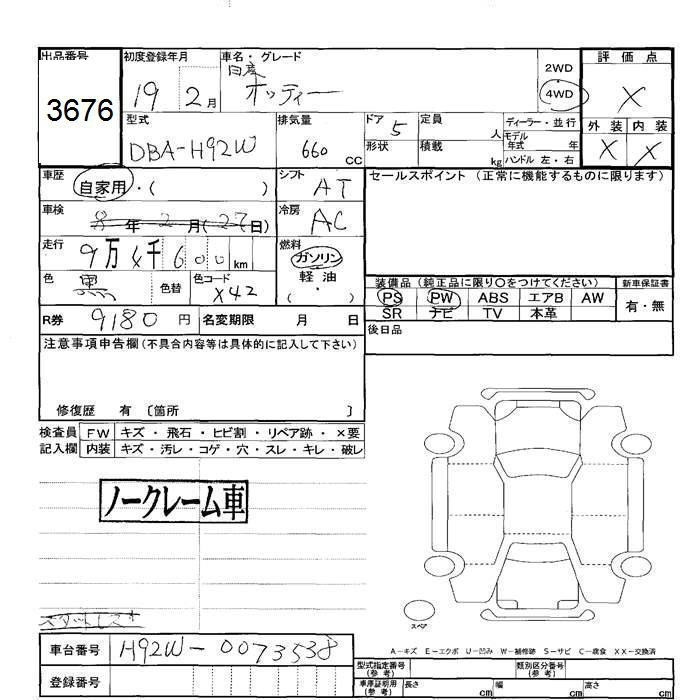 出品番号 初度登録年月 車名・グレード 評価点
3676 19 2月 日産 オッティー 2WD 4WD X
型式 排気量 ドア 定員 ディーラー・並行 外装 内装
DBA-H92W 660 CC 5 人 モデル年式 年 X X
形状 積載 kg ハンドル 左・右
車歴 自家用・( ) シフト AT セールスポイント (正常に機能するものに限ります)
車検 8年2月(27日) 冷房 AC
走行 9万4千600km 燃料 ガソリン・軽油 ( )
色 黒 色替 色コード X42
装備品 (純正品に限り〇をつけてください) 新車保証書
PS PW ABS エアB AW 有・無
SR ナビ TV 本革
R券 9180円 名変期限 月 日 後日品
注意事項申告欄 (不具合内容等は具体的に記入して下さい)
修復歴 有 〔箇所 〕
検査員 FW キズ・飛石・ヒビ割・リペア跡・×要
記入欄 内装 キズ・汚レ・コゲ・穴・スレ・キレ・破レ
ノークレーム車
スタットレス
スペア
車台番号 H92W-0073538
A-キズ E-エクボ U-凹み W-補修跡 S-サビ C-腐食 XX-交換済
登録番号
型式指定番号 (参考) 類別区分番号 (参考)
車庫証明用 (参考) 長さ cm 幅 cm 高さ cm